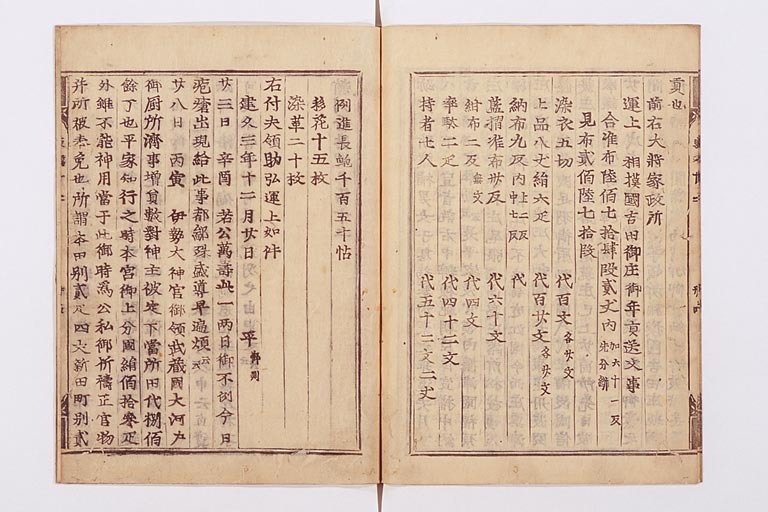 貢也
前右大將家政所
運上 相摸國吉田御庄御年貢送文事
合准布陸佰七拾肆段貳丈內 加六十一反 先分講
見布貳佰陸七拾段
染衣五切 代百文 各廿文
上品八丈絹六疋 代百廿文 各廿文
納布九反內 上二反 中七反 代
藍摺准布廿反 代六十文
紺布二反 無文 代四文
率馱二疋 代四十二文
持者七人 代五十二文二丈
例進長鮑千百五十帖
移花十五枚
染革二十枚
右付夫領助弘運上如件
建久三年十二月廿日 平
廿三日 辛酉 若公萬壽此一兩日御不例今日
疱瘡出現給此事都鄙殊盛尊卑遍煩云云
廿八日 丙寅 伊勢大神宮御領武藏國大河戶
御厨所濟事增員數對神主被定下當所田代捌佰
餘丁也平家知行之時本宮御上分國絹佰拾參疋
外雖不能神用當于此御時爲公私御祈禱正官物
幷所被悉免也所謂本田別貳疋四丈新田町別貳